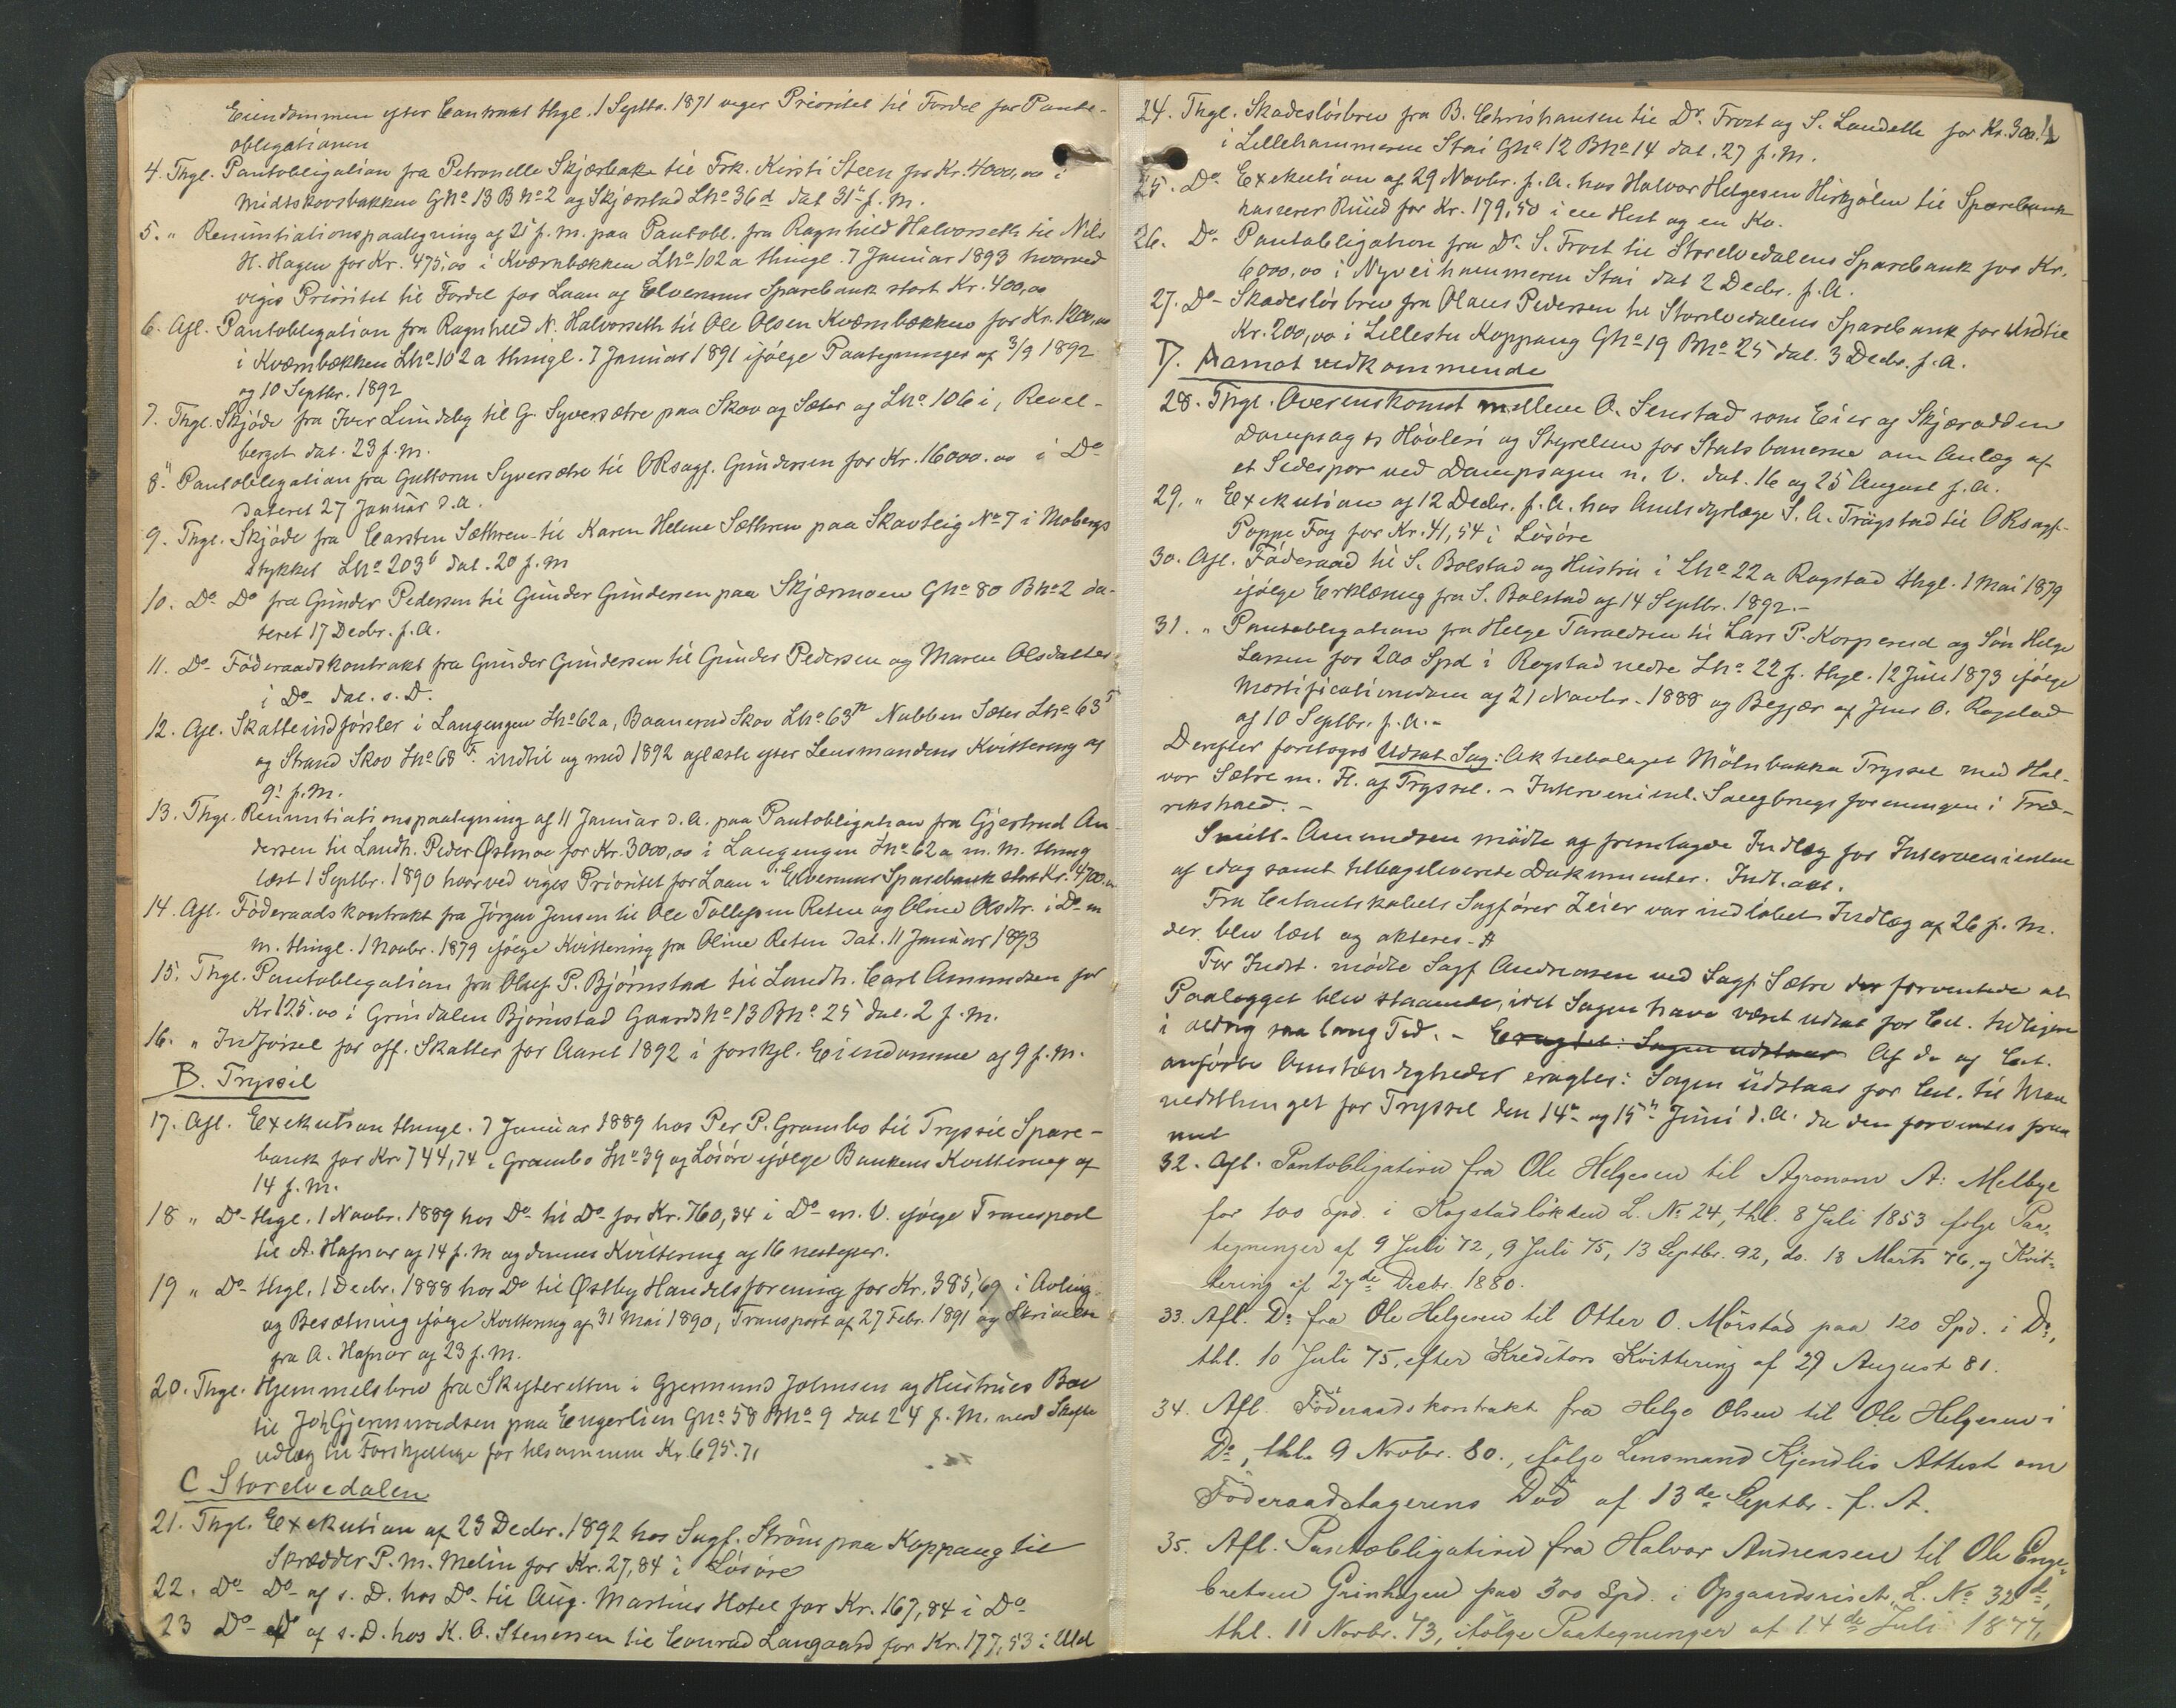 Eiendommen efter Contrakt thgl. 1 Septbr. 1871 viger Prioritet til Fordel for Pante-
obligationen
4. Thgl. Pantobligation fra Petronelle Skjærbake til Frk. Kirsti Steen for Kr. 4000,00 i
Midtskovsbakken Gno 13 Bno 2 og Skjærstad Lno 36d dat 31te f. M.
5. " Renuntiationspaategning af 21 f. m. paa Pantobl. fra Ragnhild Halvorseth til Nils
H. Hagen for Kr. 475,00 i Kværnbækken Lno 102a thingl. 7 Januar 1893 hvorved
viges Prioritet til Fordel for Laan af Elverums Sparebank stort Kr. 400,00
6. Afl. Pantobligation fra Ragnhild N. Halvorseth til Ole Olsen Kværnbækken for Kr. 1200,00
i Kværnbækken Lno 102a thingl. 7 Januar 1891 ifølge Paategninger af 3/9 1892
og 10 Septbr. 1892
7. Thgl. Skjøde fra Iver Lundeby til G. Syversætre paa Skov og Sæter og Lno 106i, Revel-
berget dat. 23 f. m.
8. " Pantobligation fra Guttorm Syversætre til ORsagf. Gundersen for Kr. 16000.00 i Do
dateret 27 Januar d. a.
9. Thgl. Skjøde fra Carsten Sæthren til Karen Helene Sæthren paa Skovteig No 7 i Mobergs
stykket Lno 203b dat. 20 f. m
10. Do Do fra Gunder Pedersen til Gunder Gundersen paa Skjærmoen Gno 80 Bno 2 da-
teret 17 Decbr. f. A.
11. Do Föderaadskontrakt fra Gunder Gundersen til Gunder Pedersen og Maren Olsdatter
i Do dat. s. D.
12. Afl. Skatteindførsler i Langengen Lno 62a, Baanerud Skov Lno 63n Nubben Sæter Lno 63
og Strand Skov Lno 68 F. indtil og med 1892 aflæste efter Lensmandens Kvittering af
9de f. m.
13. Thgl. Renuntiationspaategning af 11 Januar d. A. paa Pantobligation fra Gjertrud An-
dersen til Landh. Peder Østmoe for Kr. 3000,00 i Langengen Lno 62a m. M. thing
læst 1 Septbr. 1890 hvorved viges Prioritet for Laan i Elverums Sparebank stort Kr. 4700.00
14. Afl. Föderaadskontrakt fra Jörgen Jensen til Ole Tollefsen Reten og Oline Olsdtr. i Do m
m. thingl. 1 Novbr. 1879 ifølge Kvittering fra Oline Reten dat. 11 Januar 1893
15. Thgl. Pantobligation fra Oluf P. Bjørnstad til Landh. Carl Amundsen for
Kr 125.00 i Grindalen Bjørnstad Gaardsno 13 Bno 25 dat. 2 f. m.
16. " Indførsel for off. Skatter for Aaret 1892 i forskjl. Eiendomme af 9 f. m.
B. Trysil
17. Afl. Exekution thingl. 7 Januar 1889 hos Per P. Grambo til Trysil Spare-
bank for Kr. 744,74 i Grambo Lno 39 og Løsøre ifølge Bankens Kvittering af
14 f. m.
18 " Do thgl. 1 Novbr. 1889 hos Do til Do for Kr. 760,34 i Do m. V. ifølge Transport
til A. Hafnor af 14 f. m og dennes Kvittering af 16 nestefter.
19 " Do thgl. 1 Decbr. 1888 hos Do til Østby Handelsforening for Kr. 385,69 i Avling
og Besætning ifølge Kvittering af 31 Mai 1890, Transport af 27 Febr. 1891 og Skrivelse
fra A. Hafnor af 23 f. m.
20. Thgl. Hjemmelsbrev fra Skifteretten i Gjermund Johnsen og Hustrues Bo
til Joh Gjermundsen paa Engerlien Gno 58 Bno 9 dat 24 f. M. med Skifte
udlæg til Forskjellige for tilsammen Kr. 695.71
C Storelvedalen
21. Thgl. Exekution af 23 Decbr. 1892 hos Sagf. Strøm paa Koppang til
Skrædder P. M. Melin for Kr. 27,84 i Løsøre
22. Do Do af s. D. hos Do til Aug. Martins Hotel for Kr. 167,84 i Do
23 Do Do af s. D. hos K. O. Stenersen til Conrad Langaard for Kr. 177,53 i Uld
24. Thgl. Skadesløsbrev fra B. Christiansen til Dr. Frost og S. Landelle for Kr. 300.
i Lillehammeren Stai Gno 12 Bno 14 dat. 27 f. m.
25. Do Exekution af 29 Novbr. f. A. hos Halvor Helgesen Hirkjølen til Sparebank
kasserer Ruud for Kr. 179,50 i en Hest og en Ko.
26. Do Pantobligation fra Dr. S. Frost til Storelvedalens Sparebank for Kr.
6000,00 i Nyveihammeren Stai dat 2 Decbr. f. A.
27. Do Skadesløsbrev fra Olaus Pedersen til Storelvedalens Sparebank for indtil
Kr. 200,00 i Lillestu Koppang Gno 19 Bno 25 dat. 3 Decbr. f. A.
D. Aamot vedkommende
28. Thgl. Overenskomst mellem O. Senstad som Eier af Skjærodden
Dampsag & Høvleri og Styrelsen for Statsbanerne om Anlæg af
et Sidespor ved Dampsagen m. V. dat. 16 og 25 August f. A.
29. " Exekution af 12 Decbr. f. A. hos Amtsdyrlæge S. A. Trøgstad til ORsagf.
Poppe Fog for Kr. 41,54 i Løsøre
30. Afl. Föderaad til S. Bolstad og Hustru i Lno 22a Rogstad thgl. 1 Mai 1879
ifølge Erklæring fra S. Bolstad af 14 Septbr. 1892.-
31. " Pantobligation fra Helge Taraldsen til Lars P. Korperud og Søn Helge
Larsen for 200 Spd i Rogstad nedre Lno 22f. thgl. 12 Juni 1873 ifølge
Mortificationsdom af 21 Novbr. 1888 og Begjær af Jens O. Rogstad
af 10 Septbr. f. A.-
Derefter foretoges Udsat Sag: Aktiebolaget Mölnbacka Trysil mod Hal-
vor Sætre m. Fl. af Trysil. - Intervenient. Saugbrugsforeningen i Fred-
rikshald. -
Smith-Amundsen mødte og fremlagde Indlæg for Intervenienten
af idag samt tilbageleverede Dokumenter. Indt. anl.
Fra Citantskabets Sagfører Zeier var indløbet Indlæg af 26 f. M.
der blev læst og akteres - A
For Indst. mødte Sagf Andreasen ved Sagf. Sætre der forventede at
Paalegget blev staaende, idet Sagen have været udsat for Cit. tidligere
i aldrig saa lang Tid. - Eragtet: Sagen udstaar Af de af Cit.
anførte Omstændigheder eragtes: Sagen udstaar for Cit. til Mau
nedsthinget for Trysil den 14de og 15de Juni d. A. da den forventes frem
met
32. Afl. Pantobligation fra Ole Helgesen til Agronom A. Melbye
for 100 Spd. i Rogstadløkken L. No 24, thl. 8 Juli 1853 ifølge Paa-
tegninger af 9 Juli 72, 9 Juli 75, 13 Septbr. 92, do. 18 Marts 76, og Kvit-
tering af 27de Decbr. 1880.
33. Afl. Do fra Ole Helgesen til Otter O. Mørstad paa 120 Spd. i Do,
thl. 10 Juli 75, efter Kreditors Kvittering af 29 August 81.
34. Afl. Föderaadskontrakt fra Helge Olsen til Ole Helgesen i
Do, thl. 9 Novbr. 80., ifølge Lensmand Kjendlis Attest om
Föderaadstagerens Död af 13de Septbr. f. A.
35. Afl. Pantobligation fra Halvor Andreasen til Ole Enge-
bretsen Grinhagen paa 300 Spd. i Opgaardsriset, L. No 32d,
thl. 11 Novbr. 73, ifølge Paategninger af 14de Juli 1877,